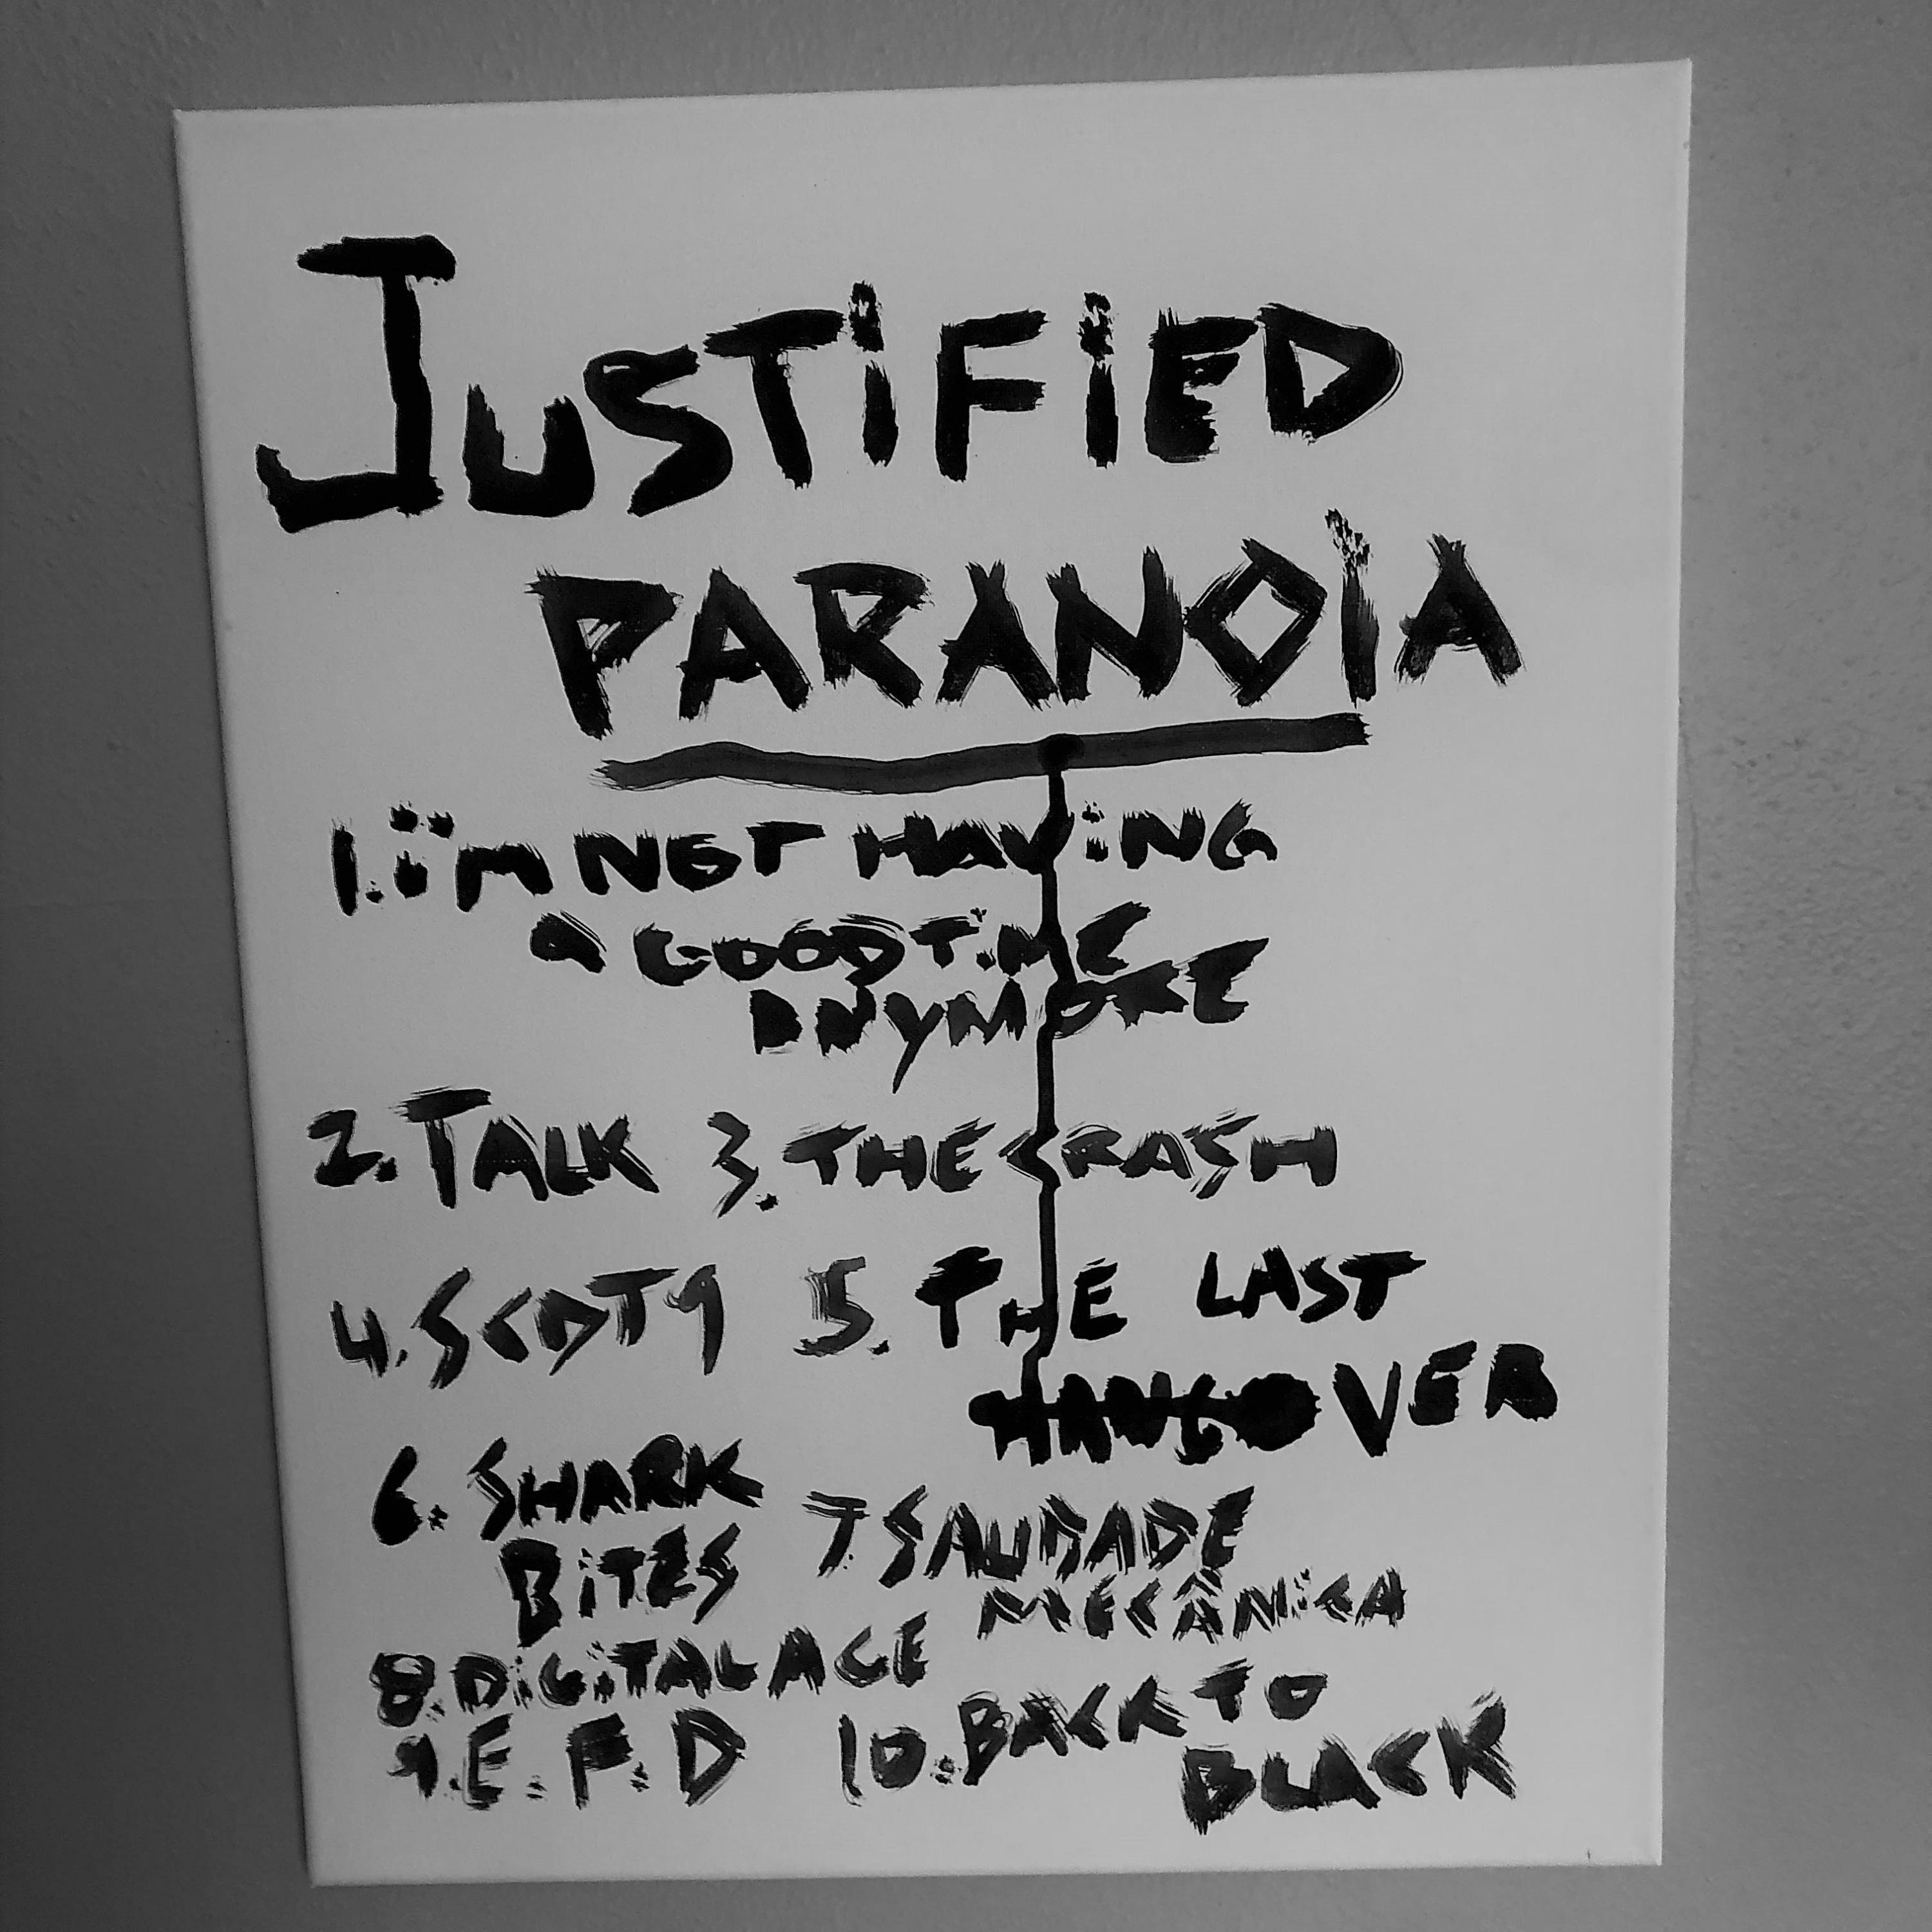 JUSTiFiED
PARANOiA
1. i'M NOT HAViNG
a GOOD TiME
ANYMORE
2. TALK 3. THE CRASH
4. SCDT9 5. THE LAST
HANGOVER
6. SHARK
BiTES
7. SAUDADE
MECÂNiCA
8. DiGiTAL AGE
9. E. F. D
10. BACK TO
BLACK